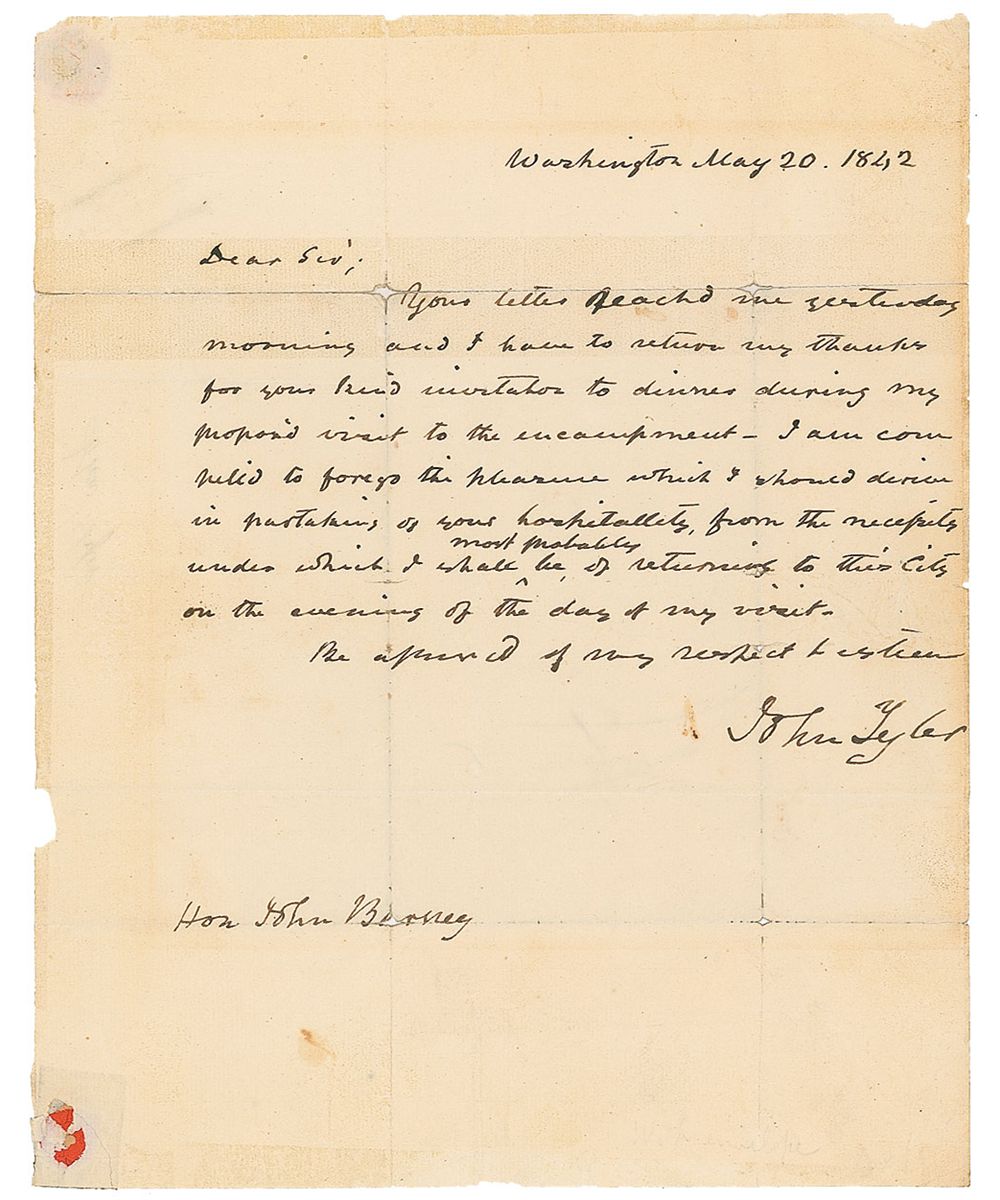 Washington May 20. 1842
Dear Sir;
Your letter reachd me yesterday
morning and I have to return my thanks
for your kind invitation to dinner during my
propos'd visit to the encampment - I am com
pell'd to forego the pleasure which I should derive
in partaking of your hospitallity, from the necessity
most probably
under which I shall be, of returning to this City
on the evening of the day of my visit.
Be assured of my respect & esteem
John Tyler
Hon John Barney